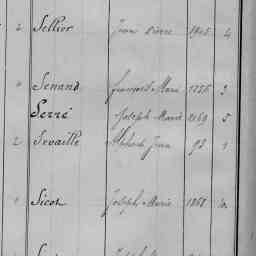 2 Sellier Jean Pierre 1905 4
Senand François Marie 1886 3
Serré Joseph Marie 1869 5
2 Sevaille Alphonse Jean 98 1
1 Sicot Joseph Marie 1868